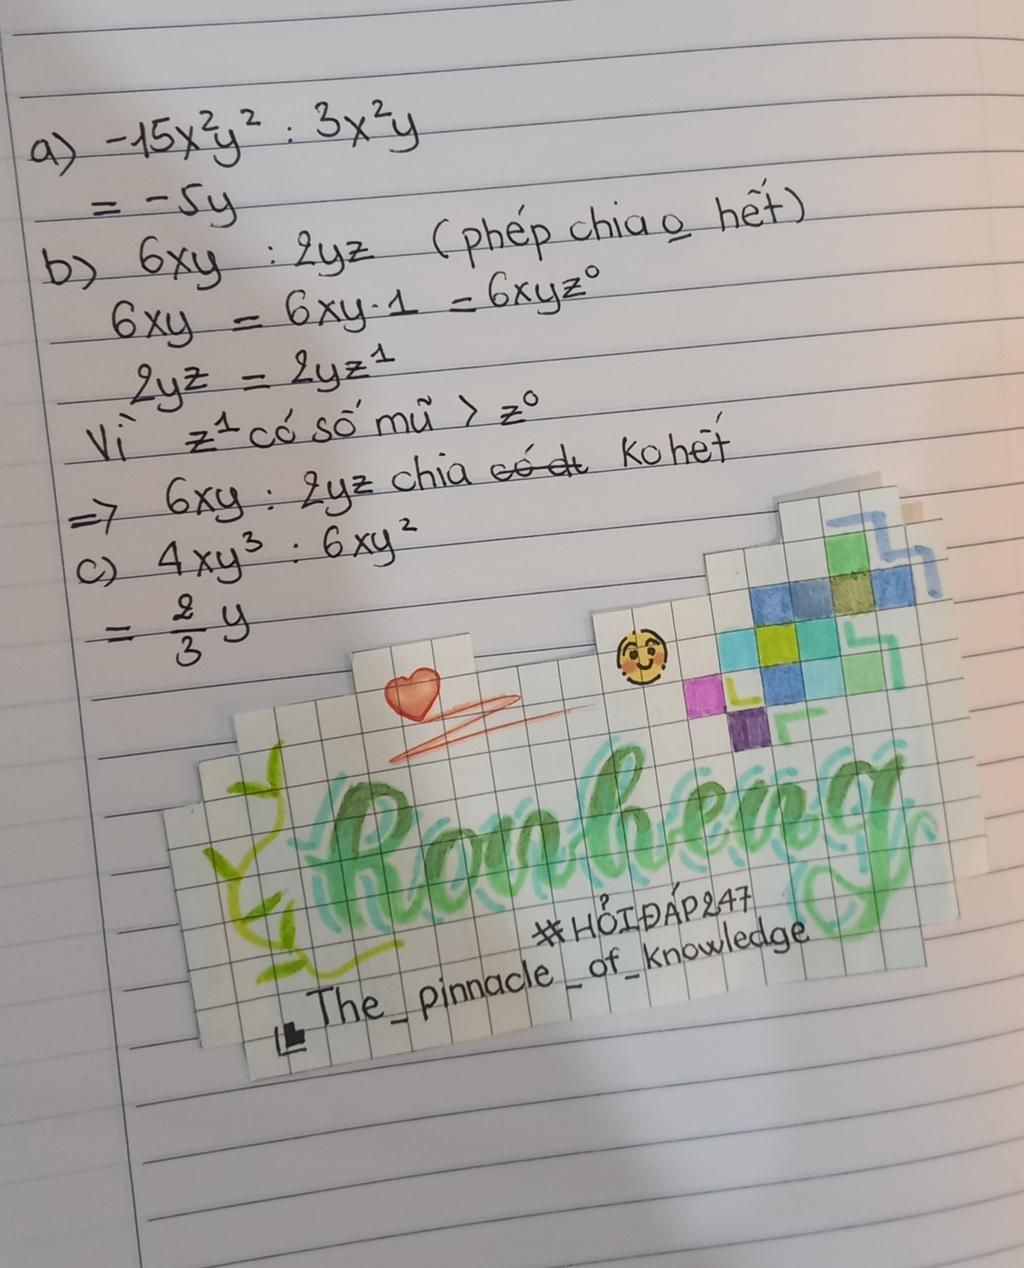 a) -15x²y² : 3x²y
= -5y
b) 6xy : 2yz (phép chia o hết)
6xy = 6xy.1 = 6xyz⁰
2yz = 2yz¹
Vì z¹ có số mũ > z⁰
=> 6xy : 2yz chia có dt ko hết
c) 4xy³ : 6xy²
= 2/3 y
Ronheng
#HỎIĐÁP247
The_pinnacle_of_knowledge